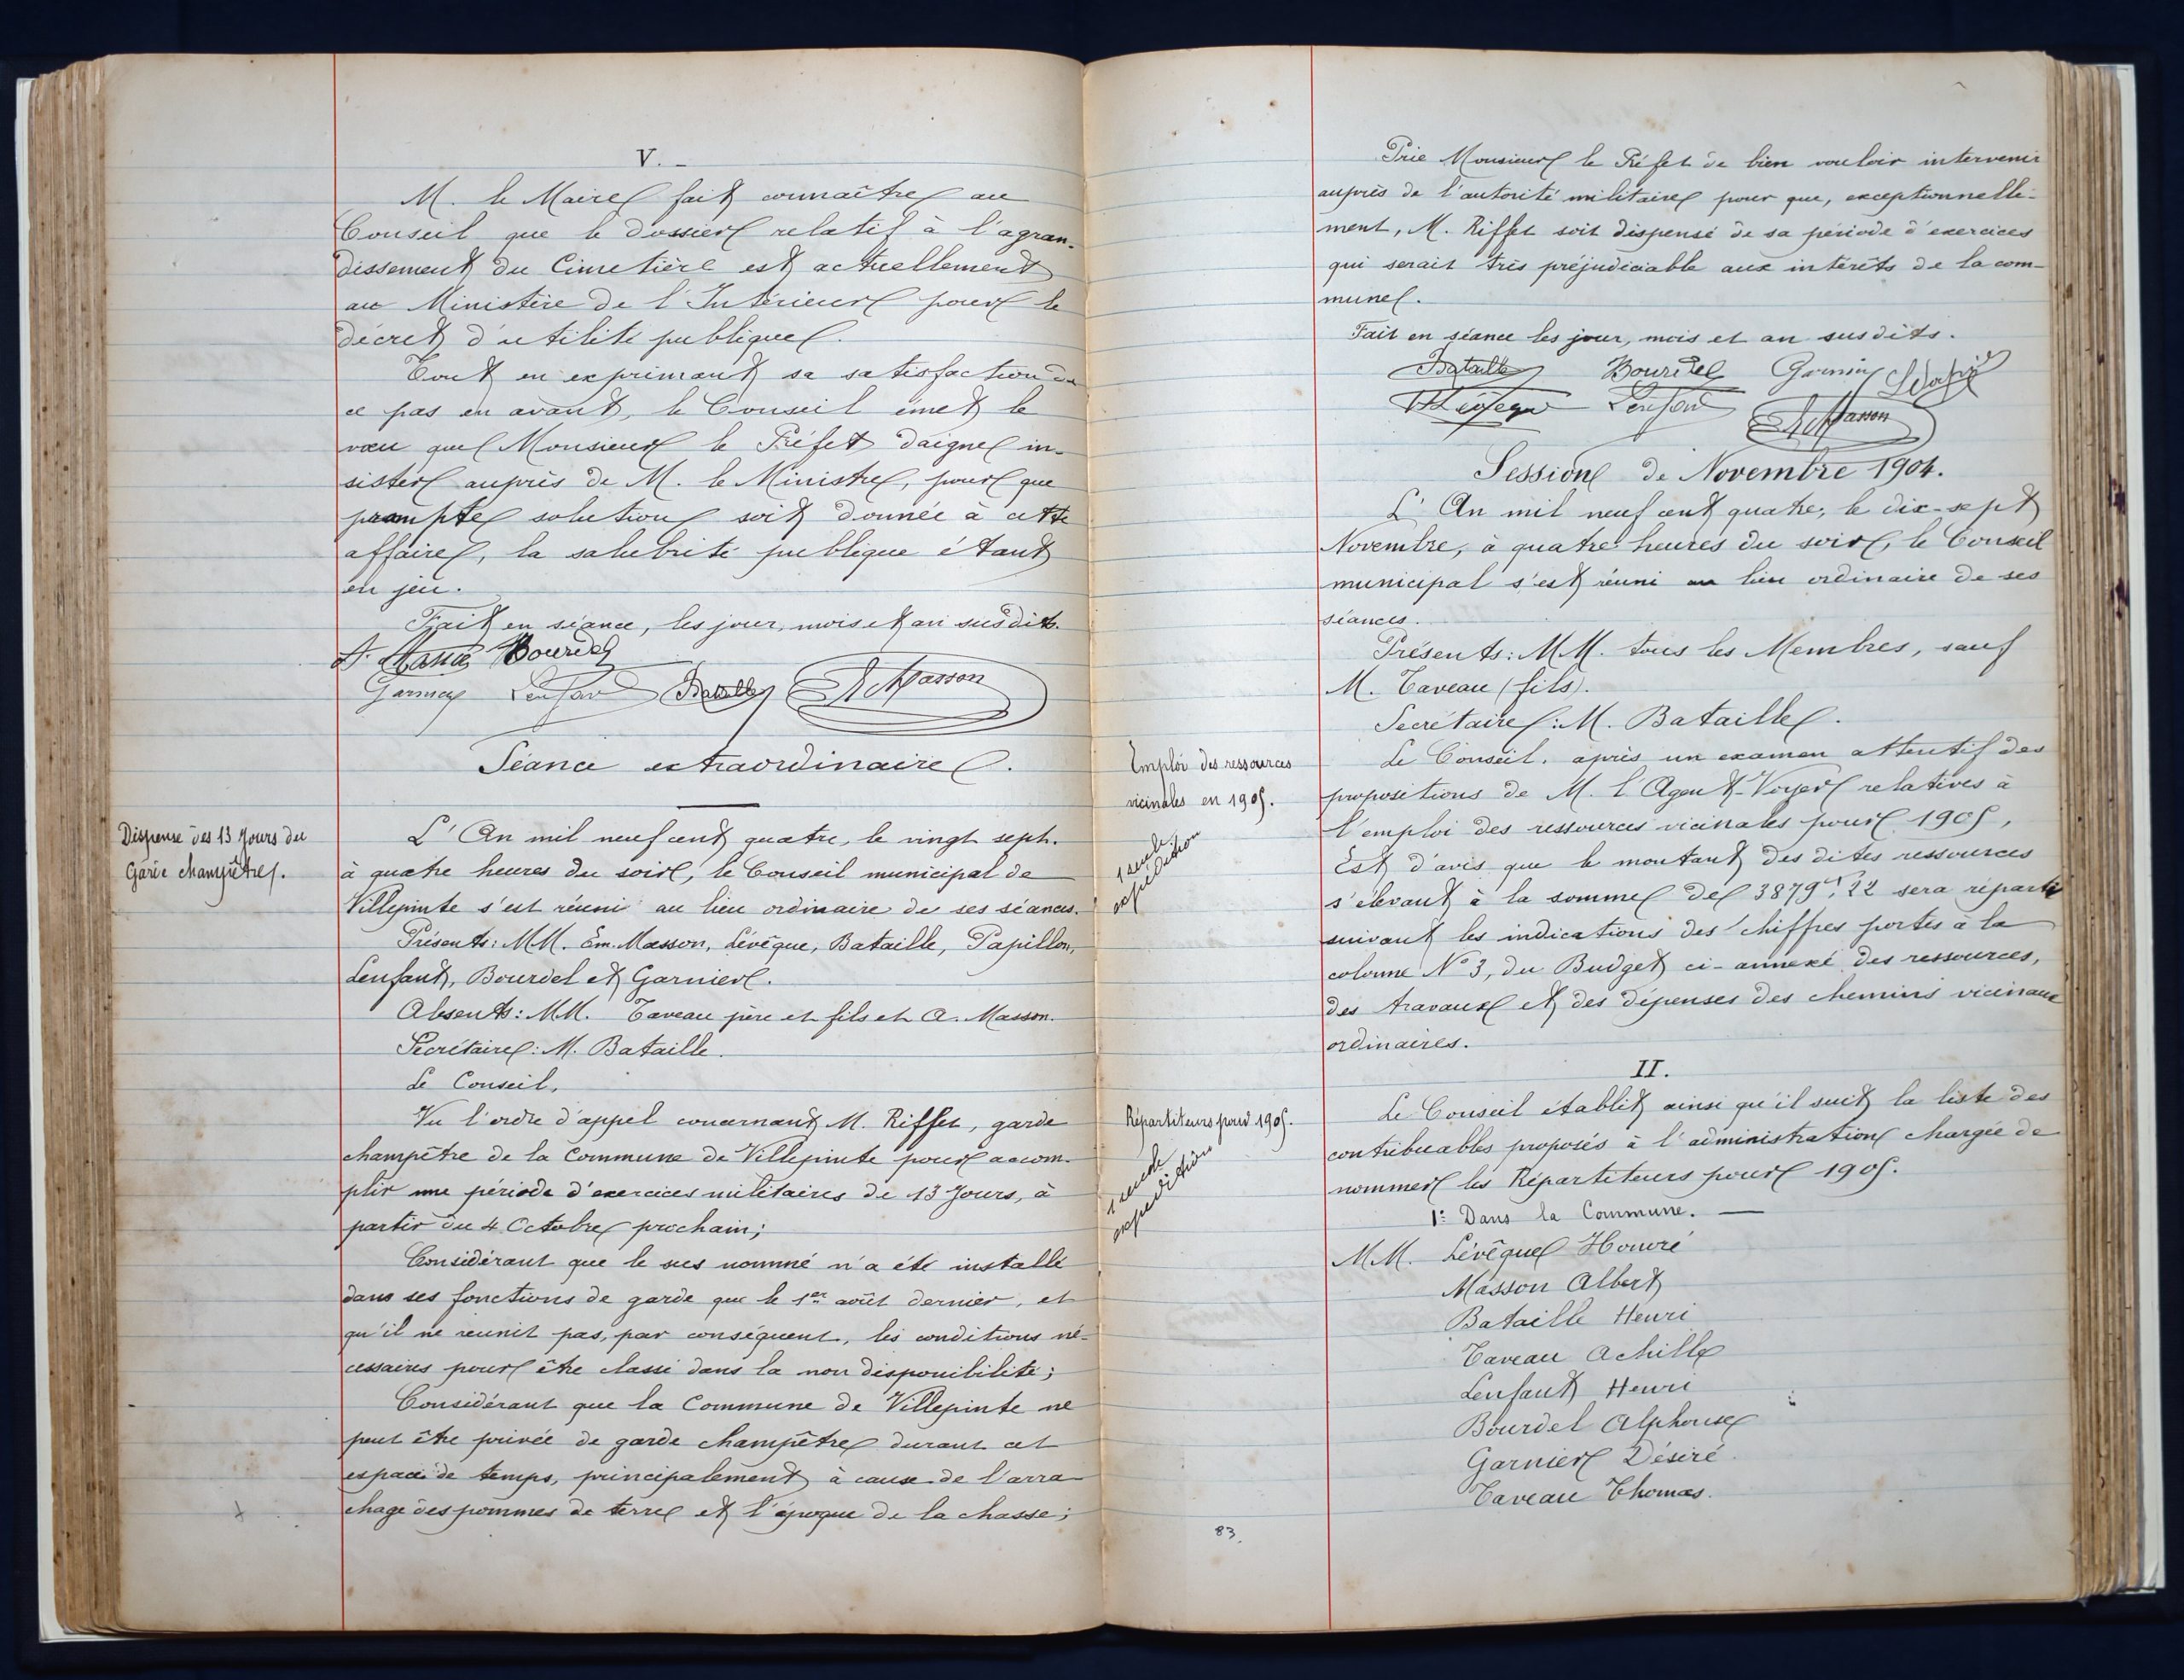 V. _
M. le Maire fait connaître au
Conseil que le dossier relatif à l'agran-
dissement du Cimetière est actuellement
au Ministère de l'Intérieur pour le
décret d'utilité publique.
Tout en exprimant sa satisfaction de
ce pas en avant, le Conseil émet le
vœu que Monsieur le Préfet daigne in-
sister auprès de M. le Ministre, pour que
prompte solution soit donnée à cette
affaire, la salubrité publique étant
en jeu.
Fait en séance, les jour, mois et an susdits.
Bourdel
Garnier Lenfant Bataille Masson
Séance extraordinaire.
Dispense des 13 Jours du
Garde champêtre.
L'An mil neuf cent quatre, le vingt sept.
à quatre heures du soir, le Conseil municipal de
Villepinte s'est réuni au lieu ordinaire de ses séances.
Présents: MM. Em. Masson, Lévêque, Bataille, Papillon,
Lenfant, Bourdel et Garnier.
Absents: MM. Taveau père et fils et A. Masson.
Secrétaire: M. Bataille.
Le Conseil,
Vu l'ordre d'appel concernant M. Riffet, garde
champêtre de la Commune de Villepinte pour accom-
plir une période d'exercices militaires de 13 Jours, à
partir du 4 Octobre prochain;
Considérant que le sus nommé n'a été installé
dans ses fonctions de garde que le 1er août dernier, et
qu'il ne réunit pas, par conséquent, les conditions né-
cessaires pour être classé dans la non disponibilité;
Considérant que la Commune de Villepinte ne
peut être privée de garde champêtre durant cet
espace de temps, principalement à cause de l'arra-
chage des pommes de terre et l'époque de la chasse;
Prie Monsieur le Préfet de bien vouloir intervenir
auprès de l'autorité militaire pour que, exceptionnelle-
ment, M. Riffet soit dispensé de sa période d'exercices
qui serait très préjudiciable aux intérêts de la com-
mune.
Fait en séance les jour, mois et an susdits.
Bataille Bourdel Garnier
Lenfant Masson
Session de Novembre 1904.
L'An mil neuf cent quatre, le dix-sept
Novembre, à quatre heures du soir, le Conseil
municipal s'est réuni au lieu ordinaire de ses
séances.
Présents: MM. tous les Membres, sauf
M. Taveau (fils).
Secrétaire: M. Bataille.
Emploi des ressources
vicinales en 1905.
1 seule
expédition
Le Conseil, après un examen attentif des
propositions de M. l'Agent-Voyer relatives à
l'emploi des ressources vicinales pour 1905,
Est d'avis que le montant des dites ressources
s'élevant à la somme de 3879f,22 sera réparti
suivant les indications des chiffres portés à la
colonne No 3, du Budget ci-annexé des ressources,
des travaux et des dépenses des chemins vicinaux
ordinaires.
II.
Répartiteurs pour 1905.
1 seule
expédition
Le Conseil établit ainsi qu'il suit la liste des
contribuables proposés à l'administration chargée de
nommer les Répartiteurs pour 1905.
1° Dans la Commune. —
MM. Lévêque Honoré
Masson Albert
Bataille Henri
Taveau Achille
Lenfant Henri
Bourdel Alphonse
Garnier Désiré
Taveau Thomas.
83.